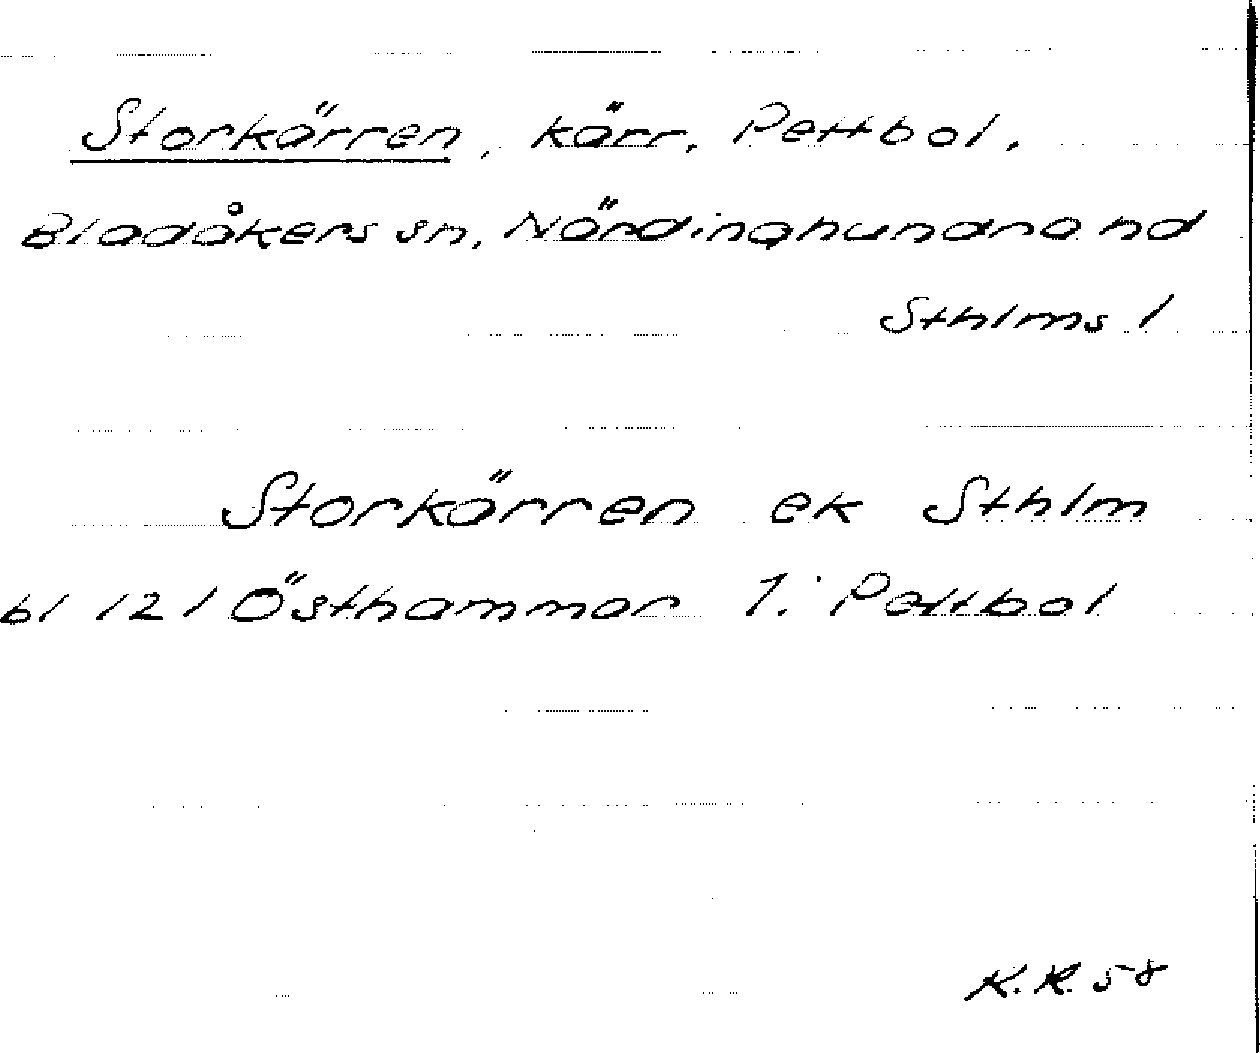 Storkärren, kärr, Pettbol,
Bladåkers sn, Närdinghundra hd
Sthlms l
Storkärren ek Sthlm
bl 121 Östhammar 1: Pettbol
K.R. 58